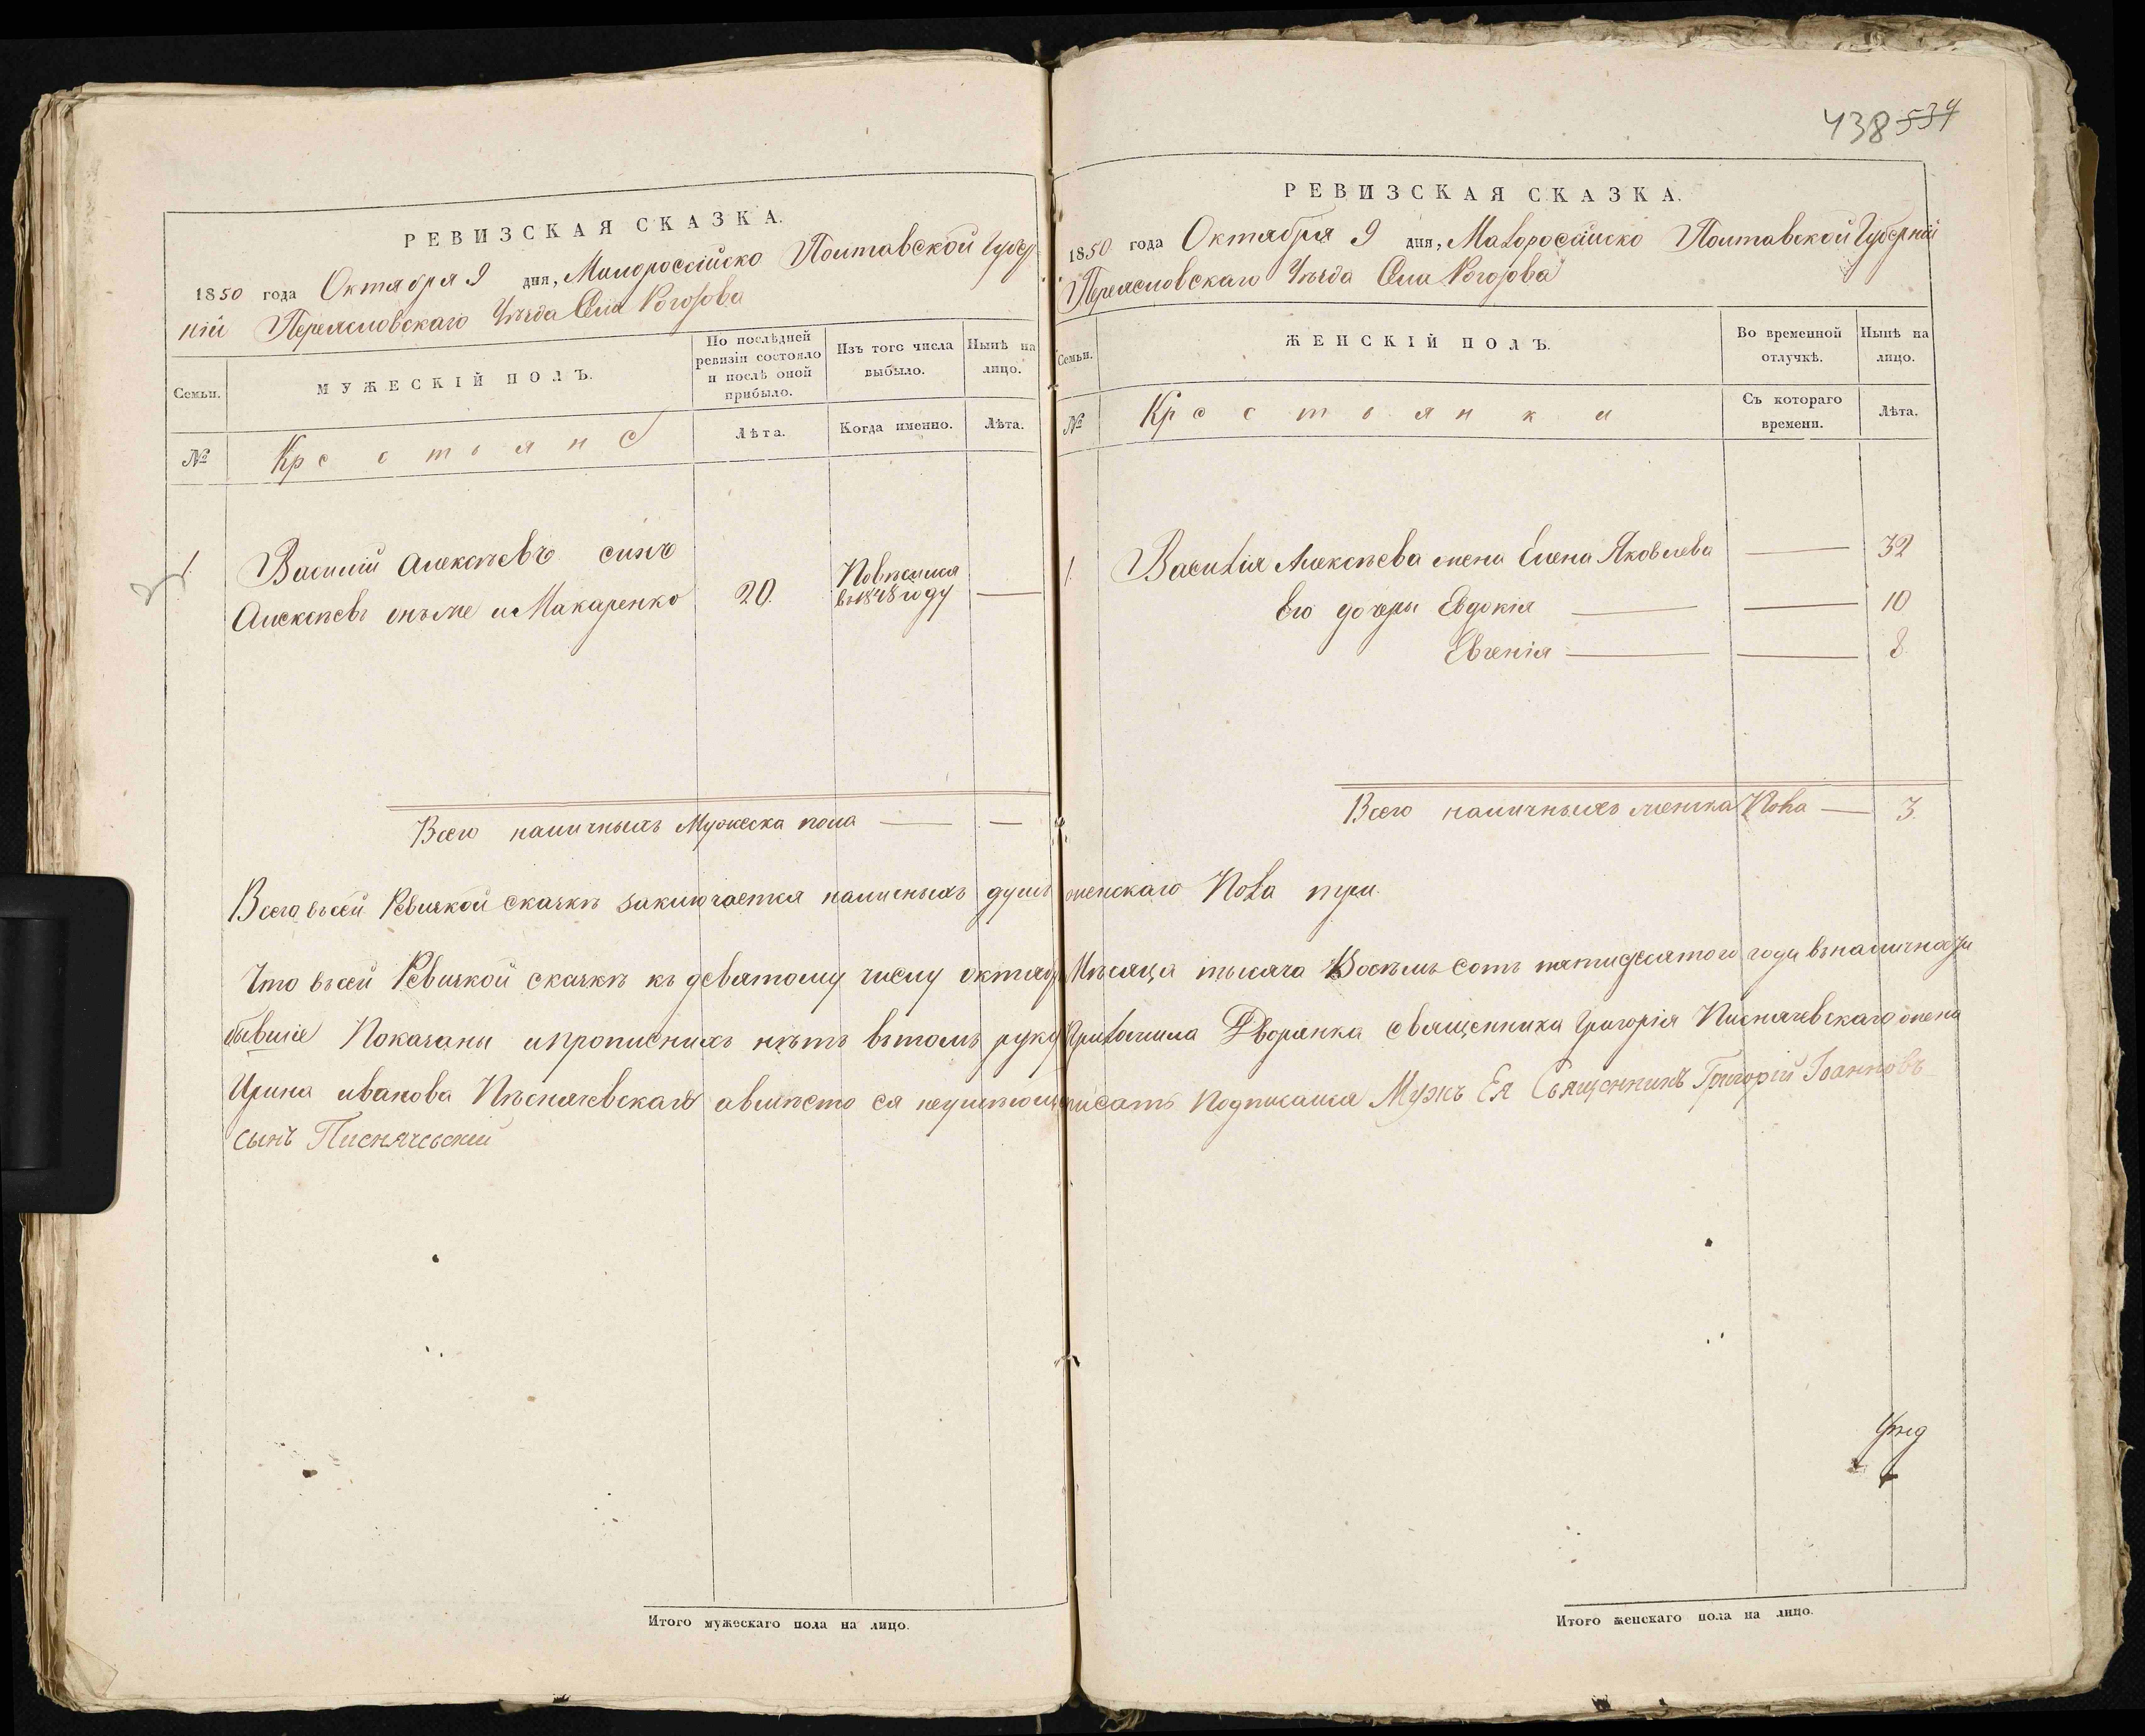 438 534
РЕВИЗСКАЯ СКАЗКА.
1850 года Октября 9 дня, Малороссійско Полтавской Губер
ніи Переясловскаго Уѣзда Села Рогозова
Семьи.
МУЖЕСКІЙ ПОЛЪ.
По послѣдней ревизіи состояло и послѣ оной прибыло.
Изъ того числа выбыло.
Нынѣ на лицо.
№
Крестьяне
Лѣта.
Когда именно.
Лѣта.
1. Василій Алексѣевъ синъ
Алексѣевъ онъже и Макаренко 20. Повѣсился в 1848 году —
Всего наличныхъ Мужеска пола — —
РЕВИЗСКАЯ СКАЗКА.
1850 года Октября 9 дня, Малороссійско Полтавской Губерніи
Переясловскаго Уѣзда Села Рогозова
Семьи.
ЖЕНСКІЙ ПОЛЪ.
Во временной отлучкѣ.
Нынѣ на лицо.
№
Крестьянки
Съ котораго времени.
Лѣта.
1. Василія Алексѣева жена Елена Яковлева — 32
Его дочеры Евдокія — — 10
Евгенія — — 8
Всего наличныхъ женска Пола — 3
Всего въсей Ревизкой сказкѣ заключается наличныхъ душъ женскаго Пола три.
Что въсей Ревизкой сказкѣ къ девятому числу октяб Мѣсяца тысяча Восѣмъ сотъ пятидесятого года вналичности
бывшіе Показаны ипрописнихъ нѣтъ втомъ руку Приложила Дворянка священника Григорія Писнячевскаго жена
Ирина иванова Пѣснячевская авмѣсто ея неумѣющ писать Подписался Мужъ Ея Священникъ Григорій Іоанновъ
сынъ Писнячевскій
Итого мужескаго пола на лицо.
Итого женскаго пола на лицо.